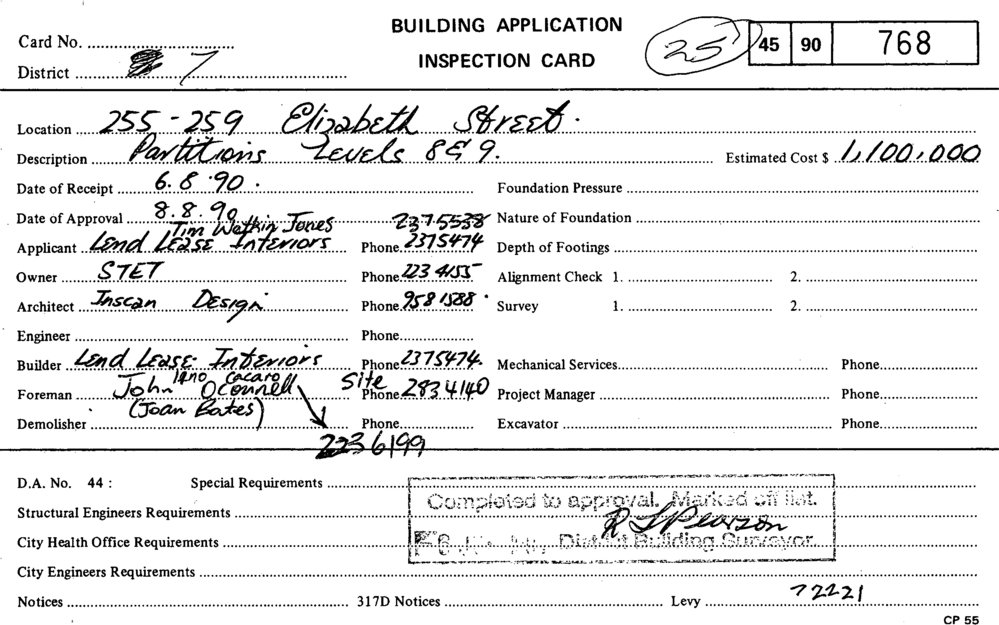 BUILDING APPLICATION
INSPECTION CARD
Card No.
District 7
25 45 90 768
Location 255-259 Elizabeth Street.
Description Partitions Levels 8 & 9. Estimated Cost $ 1,100,000
Date of Receipt 6.8.90. Foundation Pressure
Date of Approval 8.8.90 2375538 Nature of Foundation
Tim Watkin Jones
Applicant Lend Lease Interiors Phone 2375474 Depth of Footings
Owner STET Phone 223 4155 Alignment Check 1. 2.
Architect Inscan Design Phone 958 1588 Survey 1. 2.
Engineer Phone
Builder Lend Lease Interiors Phone 2375474. Mechanical Services Phone
Cacaro
Foreman John O'Connell Site Phone 283 4140 Project Manager Phone
(Joan Bates)
Demolisher Phone Excavator Phone
223 6199
D.A. No. 44: Special Requirements
Completed to approval. Marked off list.
Structural Engineers Requirements R L Pearson
City Health Office Requirements District Building Surveyor.
City Engineers Requirements
Notices 317D Notices Levy 72221
CP 55